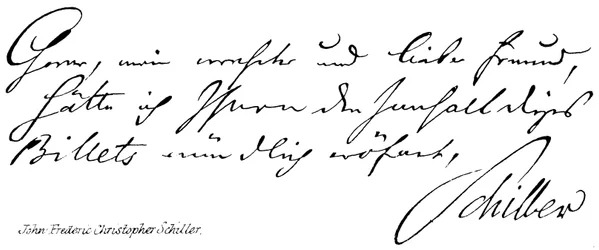 Gerne, mein werthester und lieber Freund,
hätte ich Ihnen den Innhalt dieses
Billets mündlich eröfnet,
Schiller
John Frederic Christopher Schiller.